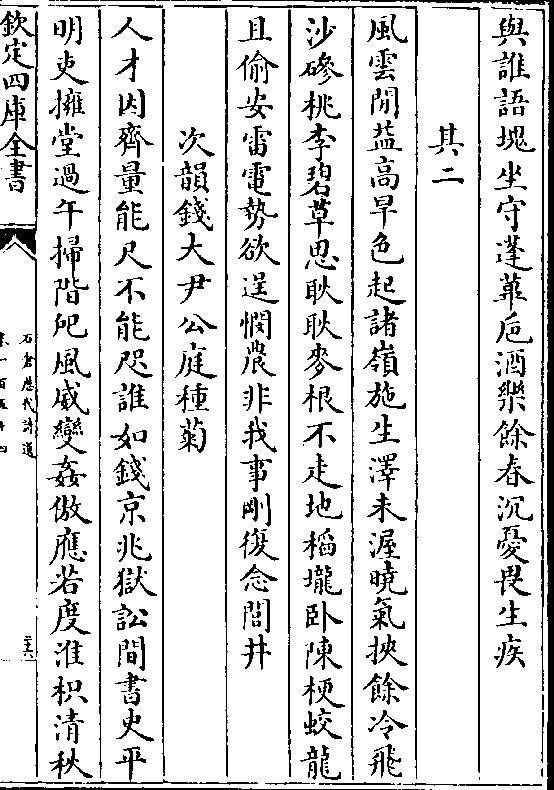 與誰語塊坐守蓬蓽巵酒樂餘春沉憂畏生疾
其二
風雲閒益高旱色起諸嶺施生澤未渥曉氣挾餘冷飛
沙磣桃李碧草思耿耿麥根不走地稻壠卧陳梗蛟龍
且偷安雷電勢欲逞憫農非我事剛復念閭井
次韻錢大尹公庭種菊
人才因齊量能尺不能咫誰如錢京兆獄訟間書史平
明吏擁堂過午掃階戺風威變姦倣應若度淮枳清秋
欽定四庫全書
石倉歷代詩選
卷一百五十四
三六